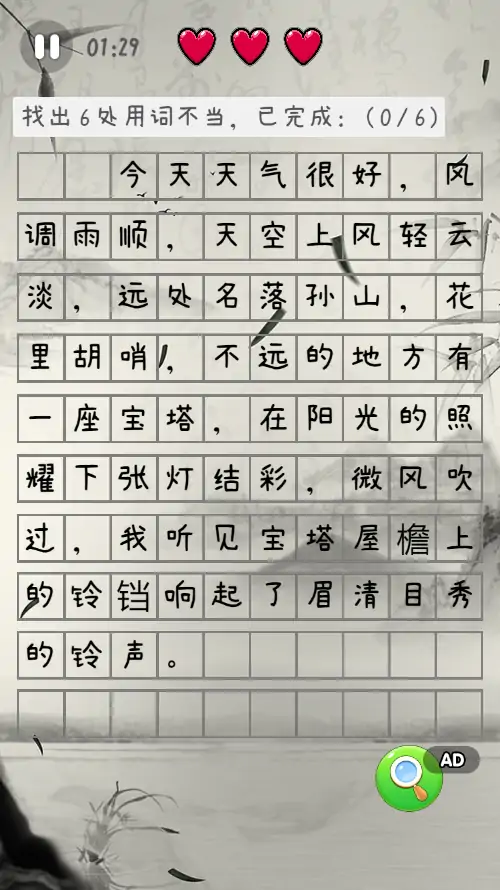 01:29
找出6处用词不当，已完成：(0/6)
今天天气很好，风
调雨顺，天空上风轻云
淡，远处名落孙山，花
里胡哨，不远的地方有
一座宝塔，在阳光的照
耀下张灯结彩，微风吹
过，我听见宝塔屋檐上
的铃铛响起了眉清目秀
的铃声。
AD